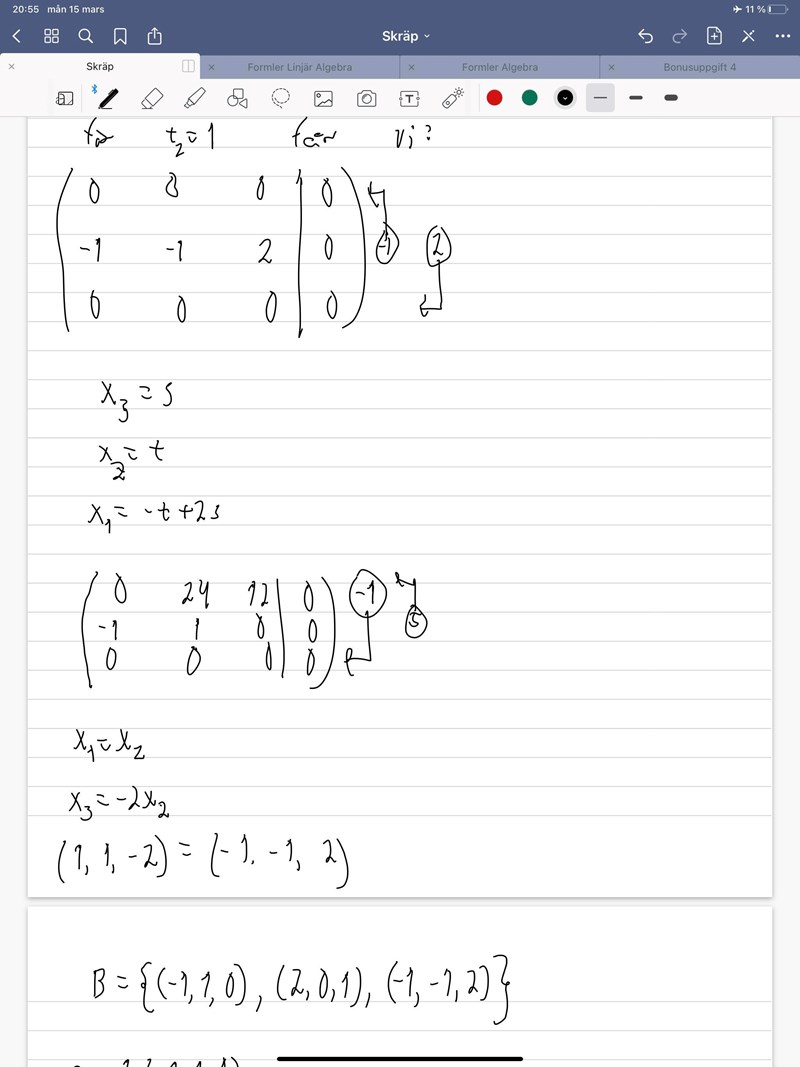 20:55 mån 15 mars 11 %
Skräp
Skräp Formler Linjär Algebra Formler Algebra Bonusuppgift 4
för t₂ = 1 får vi?
0 0 0 | 0
-1 -1 2 | 0 -1 2
0 0 0 | 0
x₃ = s
x₂ = t
x₁ = -t + 2s
0 24 12 | 0 -1
-1 1 0 | 0 5
0 0 0 | 0
x₁ = x₂
x₃ = -2x₂
(1, 1, -2) = (-1, -1, 2)
B = {(-1, 1, 0), (2, 0, 1), (-1, -1, 2)}